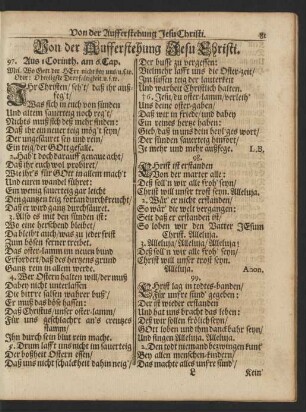 Von der Aufferstehung Jesu Christi.
81
Von der Aufferstehung Jesu Christi.
97. Aus 1 Corinth. am 5 Cap.
Mel. Wo Gott der HErr nicht bey uns
Oder: Dreyfaltigkeit
Ihr Christen/ seh't/ daß ihr auß-
feg't/
Was sich in euch von sünden
Und altem sauerteig noch reg't/
Nichts muß sich deß mehr finden:
Daß ihr ein neuer teig mög't seyn/
Der ungesäuert sey und rein/
Ein teig/ der GOtt gefalle.
2. Hab't doch darauff genaue acht/
Daß ihr euch wol probiret/
Wie ihr's für GOtt in allem mach't
Und euren wandel führet:
Ein wenig sauerteig gar leicht
Den gantzen teig fortan durchkreucht/
Daß er wird gantz durchsäuret.
3. Also es mit den sünden ist:
Wo eine herschend bleibet/
Da bleibet auch/ was zu jeder frist
Zum bösen ferner treibet.
Das oster-lamm im neuen bund
Erfordert/ daß des hertzens grund
Gantz rein in allem werde.
4. Wer Ostern halten will/ der muß
Dabey nicht unterlassen
Die bitter salsen wahrer buß/
Er muß das böß hassen:
Daß Christus/ unser oster-lamm/
Für uns geschlacht't an's creutzes
stamm/
Ihn durch sein blut rein macht.
5. Drum lasst uns nicht im sauerteig
Der boßheit Ostern essen/
Daß uns nicht schalckheit dahin neig'/
Der busse zu vergessen:
Vielmehr lasst uns die Oster-zeit/
Im süssen teig der lauterkeit
Und warheit Christlich halten.
6. HErr Jesu, oster-lamm/ verleih'
Uns deine oster-gaben/
Daß wir in friede/ und dabey
Ein reines hertze haben:
Gieb/ daß in uns dein heyl'ges wort/
Der sünden sauerteig hinfort
Je mehr und mehr außfege. L.B.
98.
Christ ist erstanden
Von der marter alle:
Deß soll'n wir alle froh' seyn/
Christ will unser trost seyn. Alleluja.
2. Wär' er nicht erstanden/
So wär' die welt vergangen:
Seit daß er erstanden ist/
So loben wir den Vatter JEsum
Christ. Alleluja.
3. Alleluja/ Alleluja/ Alleluja!
Deß soll'n wir alle froh' seyn/
Christ will unser trost seyn.
Alleluja. Anon.
99.
Christ lag in todes-banden/
Für unsre sünd' gegeben:
Der ist wieder erstanden
Und hat uns bracht das leben:
Deß wir sollen frölich seyn/
GOtt loben und ihm danckbahr seyn/
Und singen Alleluja. Alleluja.
2. Den tod niemand bezwingen kunt'
Bey allen menschen-kindern/
Das machte alles unsre sünd'/
L
Kein